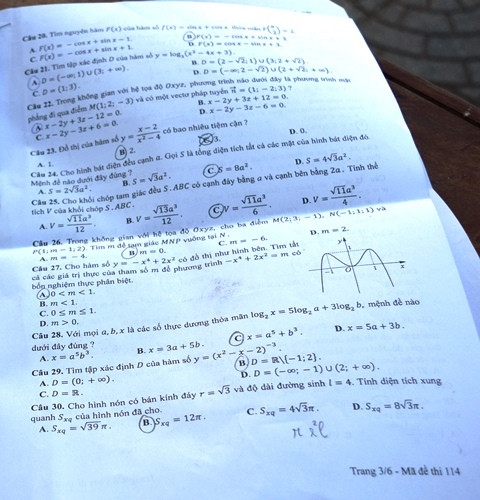 Câu 20. Tìm nguyên hàm F(x) của hàm số f(x) = sin x + cos x thỏa mãn F(π/2) = 2.
A. F(x) = − cos x + sin x − 1.
B. F(x) = − cos x + sin x + 3.
C. F(x) = − cos x + sin x + 1.
D. F(x) = cos x − sin x + 3.
Câu 21. Tìm tập xác định D của hàm số y = log₃(x² − 4x + 3).
A. D = (−∞; 1) ∪ (3; +∞).
B. D = (2 − √2; 1) ∪ (3; 2 + √2).
C. D = (1; 3).
D. D = (−∞; 2 − √2) ∪ (2 + √2; +∞).
Câu 22. Trong không gian với hệ tọa độ Oxyz, phương trình nào dưới đây là phương trình mặt
phẳng đi qua điểm M(1; 2; −3) và có một vectơ pháp tuyến n⃗ = (1; −2; 3) ?
A. x − 2y + 3z − 12 = 0.
B. x − 2y + 3z + 12 = 0.
C. x − 2y − 3z + 6 = 0.
D. x − 2y − 3z − 6 = 0.
Câu 23. Đồ thị của hàm số y = (x − 2)/(x² − 4) có bao nhiêu tiệm cận ?
A. 1.
B. 2.
C. 3.
D. 0.
Câu 24. Cho hình bát diện đều cạnh a. Gọi S là tổng diện tích tất cả các mặt của hình bát diện đó.
Mệnh đề nào dưới đây đúng ?
A. S = 2√3a².
B. S = √3a².
C. S = 8a².
D. S = 4√3a².
Câu 25. Cho khối chóp tam giác đều S.ABC có cạnh đáy bằng a và cạnh bên bằng 2a. Tính thể
tích V của khối chóp S.ABC.
A. V = √11a³/12.
B. V = √13a³/12.
C. V = √11a³/6.
D. V = √11a³/4.
Câu 26. Trong không gian với hệ tọa độ Oxyz, cho ba điểm M(2; 3; −1), N(−1; 1; 1) và
P(1; m − 1; 2). Tìm m để tam giác MNP vuông tại N.
A. m = −4.
B. m = 0.
C. m = −6.
D. m = 2.
Câu 27. Cho hàm số y = −x⁴ + 2x² có đồ thị như hình bên. Tìm tất
cả các giá trị thực của tham số m để phương trình −x⁴ + 2x² = m có
bốn nghiệm thực phân biệt.
A. 0 < m < 1.
B. m < 1.
C. 0 ≤ m ≤ 1.
D. m > 0.
y
1
-1
O
1
x
Câu 28. Với mọi a, b, x là các số thực dương thỏa mãn log₂ x = 5log₂ a + 3log₂ b, mệnh đề nào
dưới đây đúng ?
A. x = a⁵b³.
B. x = 3a + 5b.
C. x = a⁵ + b³.
D. x = 5a + 3b.
Câu 29. Tìm tập xác định D của hàm số y = (x² − x − 2)⁻³.
A. D = (0; +∞).
B. D = ℝ\{−1; 2}.
C. D = ℝ.
D. D = (−∞; −1) ∪ (2; +∞).
Câu 30. Cho hình nón có bán kính đáy r = √3 và độ dài đường sinh l = 4. Tính diện tích xung
quanh Sxq của hình nón đã cho.
A. Sxq = √39 π.
B. Sxq = 12π.
C. Sxq = 4√3π.
D. Sxq = 8√3π.
Trang 3/6 - Mã đề thi 114